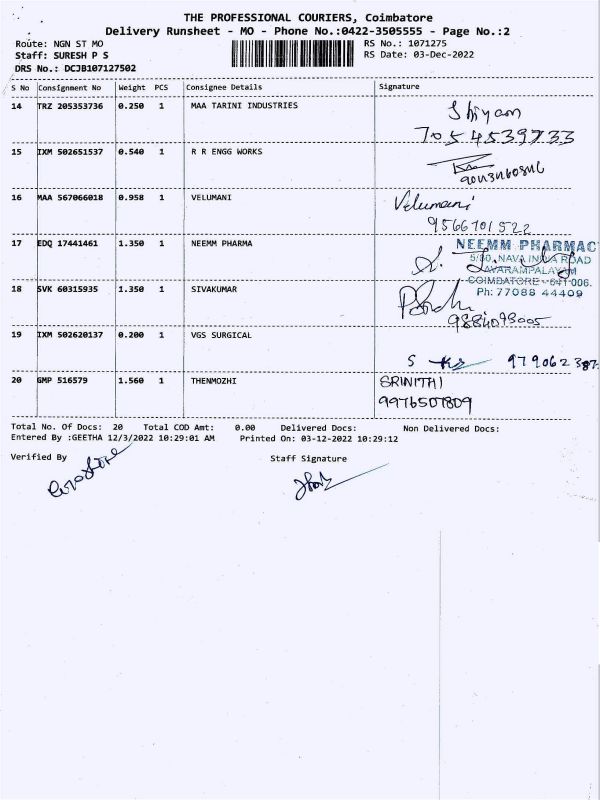 THE PROFESSIONAL COURIERS, Coimbatore
Delivery Runsheet - MO - Phone No.:0422-3505555 - Page No.:2
Route: NGN ST MO RS No.: 1071275
Staff: SURESH P S RS Date: 03-Dec-2022
DRS No.: DCJB107127502
S No Consignment No Weight PCS Consignee Details Signature
14 TRZ 205353736 0.250 1 MAA TARINI INDUSTRIES Shiyam
7054539733
15 IXM 502651537 0.540 1 R R ENGG WORKS
16 MAA 567066018 0.958 1 VELUMANI Velumani
9566701522
17 EDQ 17441461 1.350 1 NEEMM PHARMA NEEMM PHARMAC
5/80, NAVA INDIA ROAD
AVARAMPALAYAM
COIMBATORE - 641 006.
Ph: 77088 44409
18 SVK 60315935 1.350 1 SIVAKUMAR
9884093005
19 IXM 502620137 0.200 1 VGS SURGICAL
S
20 GMP 516579 1.560 1 THENMOZHI SRINITHI
9976507809
Total No. Of Docs: 20 Total COD Amt: 0.00 Delivered Docs: Non Delivered Docs:
Entered By :GEETHA 12/3/2022 10:29:01 AM Printed On: 03-12-2022 10:29:12
Verified By Staff Signature